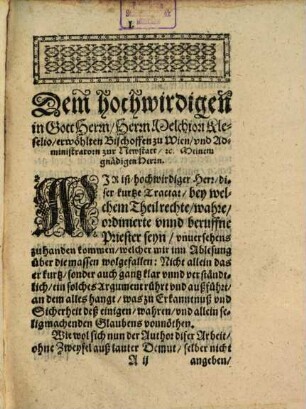 Dem hochwirdigen
in Gott Herrn/ Herrn Melchiori Kle-
selio/ erwöhlten Bischoffen zu Wien/ vnd Ad-
ministratorn zur Newstatt/ ꝛc. Meinem
gnädigen Herrn.
MIR ist/ hochwirdiger Herr/ di-
ser kurtze Tractat/ bey wel-
chem Theil rechte/ wahre/
ordinierte vnnd beruffne
Priester seyn/ vnuersehens
zuhanden kommen/ welcher mir inn Ablesung
über diemassen wolgefallen: Nicht allein das
er kurtz/ sonder auch gantz klar vnnd verständt-
lich/ ein solches Argument rührt vnd außführt/
an dem alles hangt/ was zu Erkanntnuß vnd
Sicherheit deß einigen/ wahren/ vnd allein se-
ligmachenden Glaubens vonnöthen.
Wie wol sich nun der Author diser Arbeit/
ohne Zweyfel auß lauter Demut/ selber nicht
A ij
angeben/